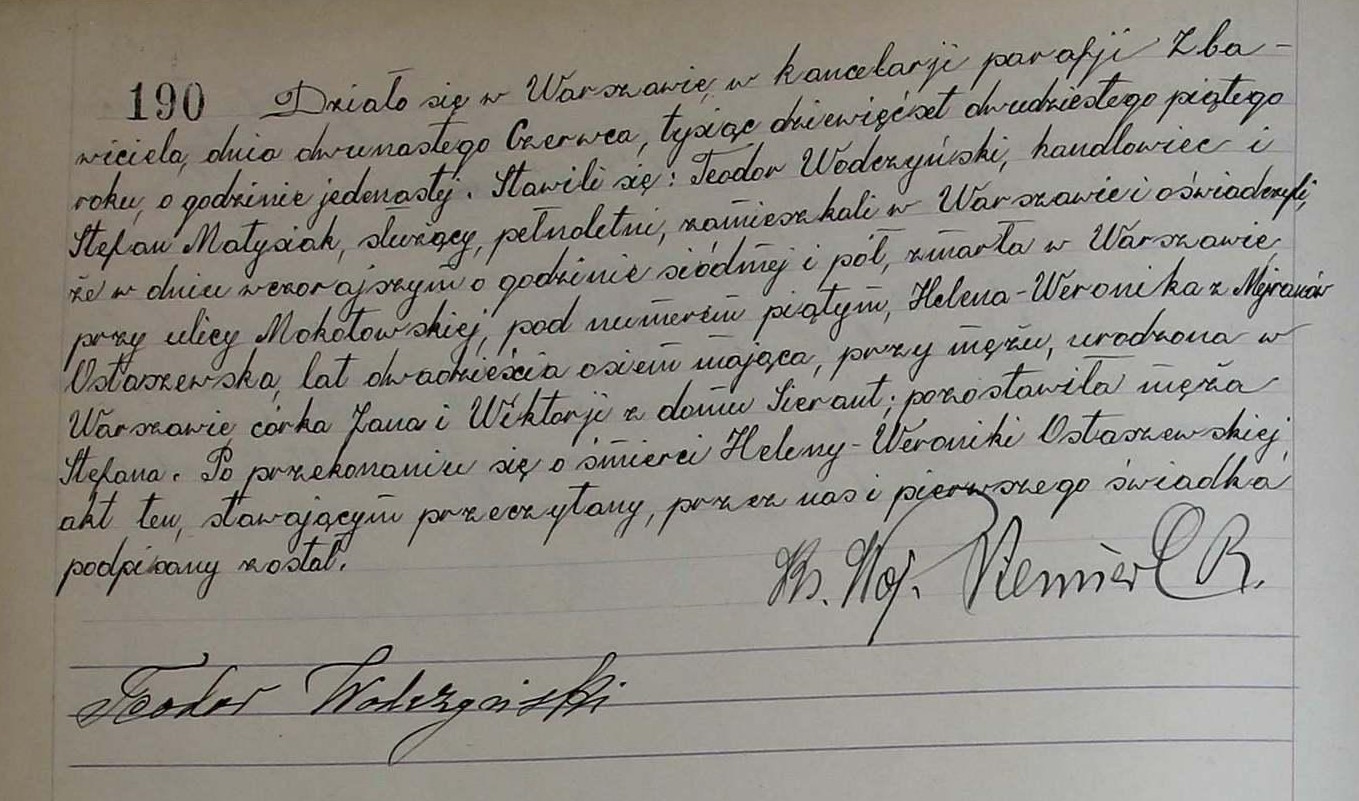 190 Działo się w Warszawie, w kancelarji parafji Zba-
wiciela, dnia dwunastego Czerwca, tysiąc dziewięćset dwudziestego piątego
roku, o godzinie jedenastej. Stawili się: Teodor Wodczyński, handlowiec i
Stefan Matysiak, służący, pełnoletni, zamieszkali w Warszawie i oświadczyli,
że w dniu wczorajszym o godzinie siódmej i pół, zmarła w Warszawie,
przy ulicy Mokotowskiej, pod numerem piątym, Helena-Weronika z
Ostaszewska, lat dwadzieścia osiem mająca, przy mężu, urodzona w
Warszawie, córka Jana i Wiktorji z domu Sieraut; pozostawiła męża
Stefana. Po przekonaniu się o śmierci Heleny-Weroniki Ostaszewskiej,
akt ten, stawającym przeczytany, przez nas i pierwszego świadka
podpisany został.
Ks.
Teodor Wodczyński